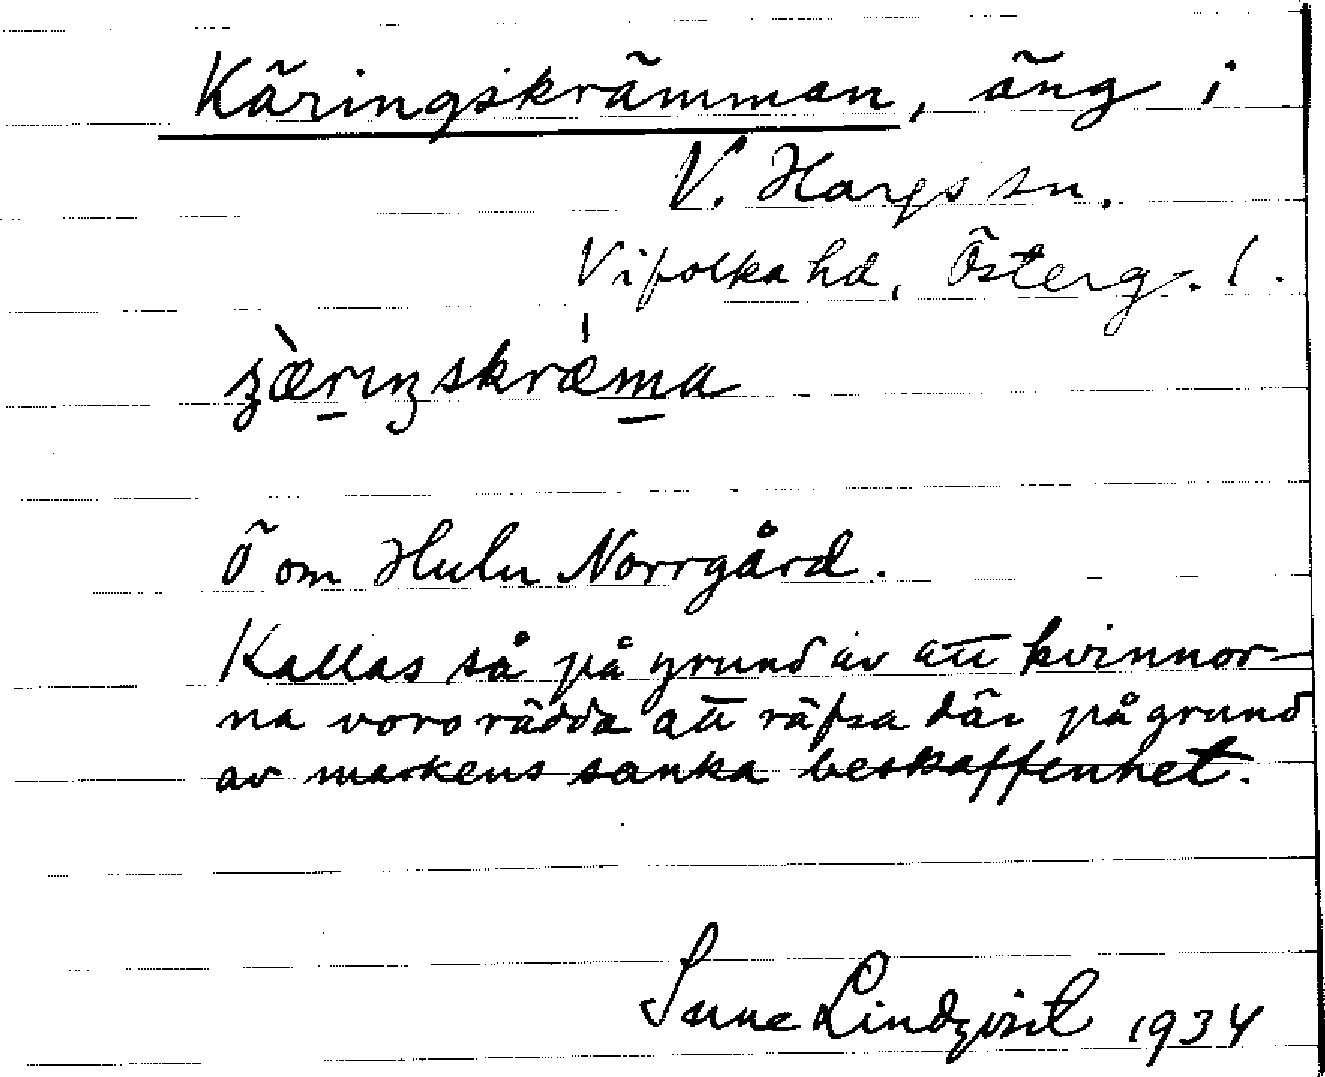 Käringskrämman, äng i
V. Hargs sn.
Vifolka hd, Österg. l.
ʒæ̀rıŋskræ̍ma
Ö om Hulu Norrgård.
Kallas så på grund av att kvinnor-
na voro rädda att räfsa där på grund
av markens sanka beskaffenhet.
Sune Lindqvist 1934